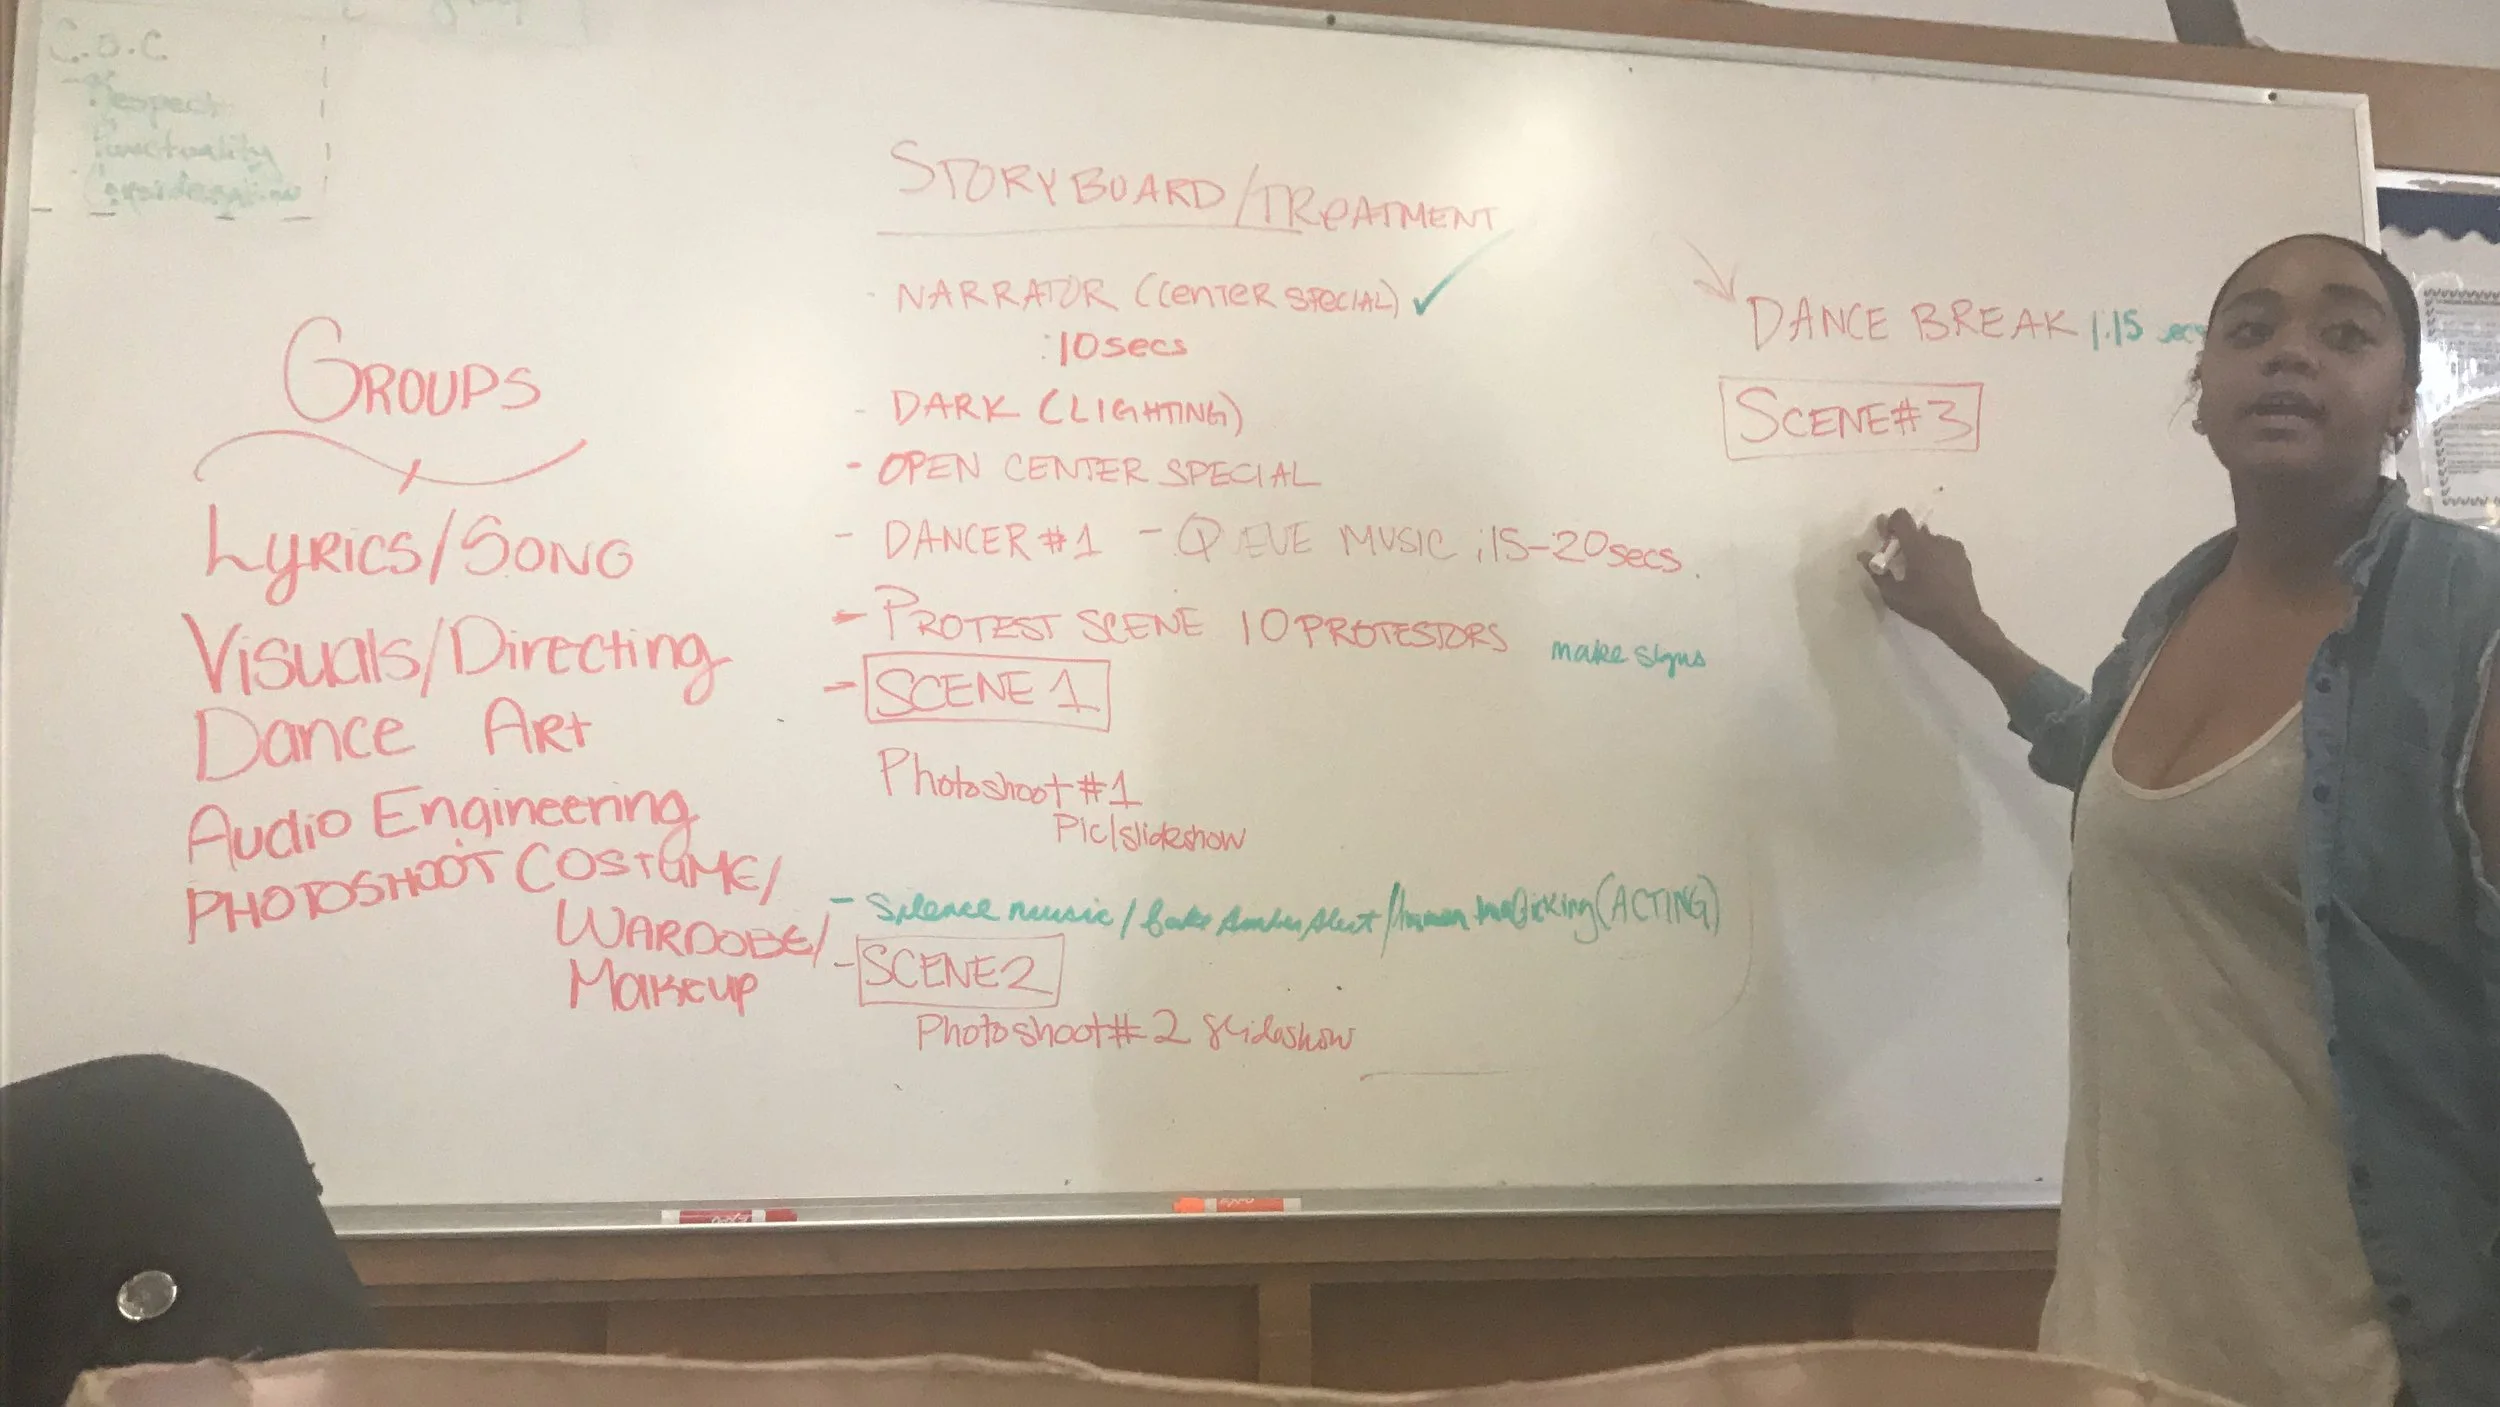 C.O.C
- Respect
Punctuality
Consideration
GROUPS
LYRICS/SONG
Visuals/Directing
Dance Art
Audio Engineering
PHOTOSHOOT COSTUME/
WARDOBE/
MAKEUP
STORYBOARD/TREATMENT
- NARRATOR (CENTER SPECIAL) ✓
:10secs
- DARK (LIGHTING)
- OPEN CENTER SPECIAL
- DANCER #1 - QUEUE MUSIC :15-20secs.
- PROTEST SCENE 10 PROTESTORS make signs
- SCENE 1
Photoshoot #1
Pic/slideshow
- Silence music / fake Amber Alert / human trafficking (ACTING)
- SCENE 2
Photoshoot #2 slideshow
DANCE BREAK 1:15 secs
SCENE #3
expo